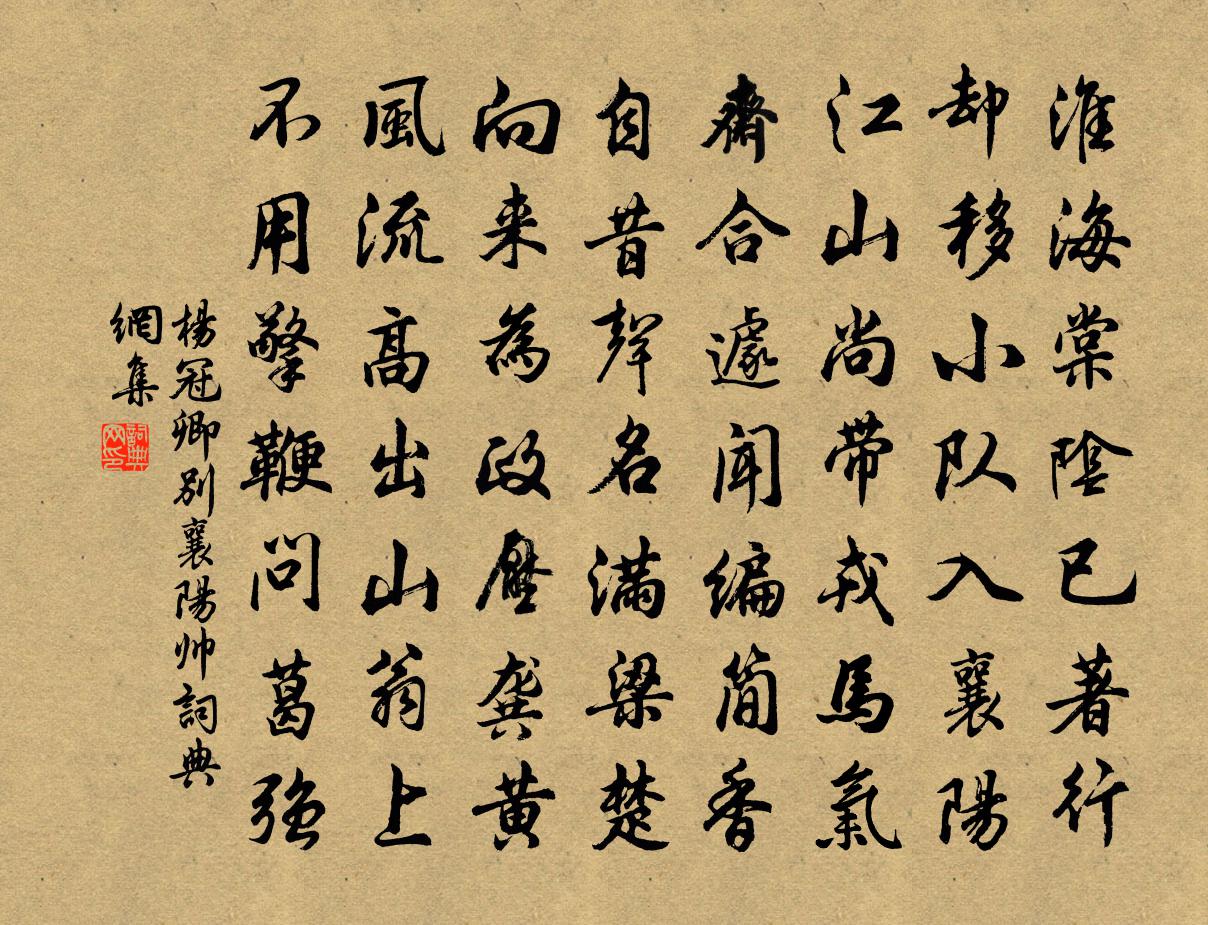 淮海棠陰已著行
却移小队入襄陽
江山尚带戎馬氣
齋合遽聞编簡香
自昔聲名滿梁楚
向来為政壓龔黄
風流高出山翁上
不用擎鞭問葛强
楊冠卿别襄陽帅詞典
網集
詞典网印